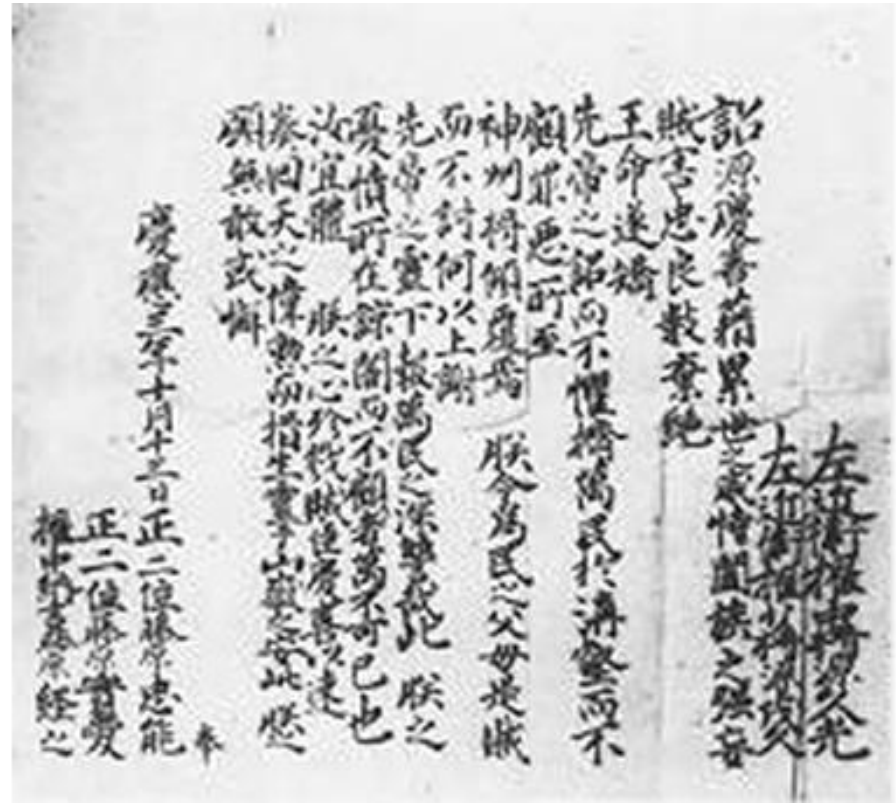 左近衛権中将源久光
左近衛権少将源茂久
詔源慶喜藉累世之威恃闔族之強妄
賊害忠良數棄絶
王命遂矯
先帝之詔而不懼擠萬民於溝壑而不
顧罪惡所至
神州将傾覆焉 朕今為民之父母是賊
而不討何以上謝
先帝之靈下報萬民之深讐哉此 朕之
憂憤所在諒闇而不顧者萬不可已也
汝宜體 朕之心殄戮賊臣慶喜以速
奏回天之偉勲而措生靈于山嶽之安此 朕之
願無敢或懈
奉
慶應三年十月十三日正二位藤原忠能
正二位藤原實愛
権中納言藤原経之